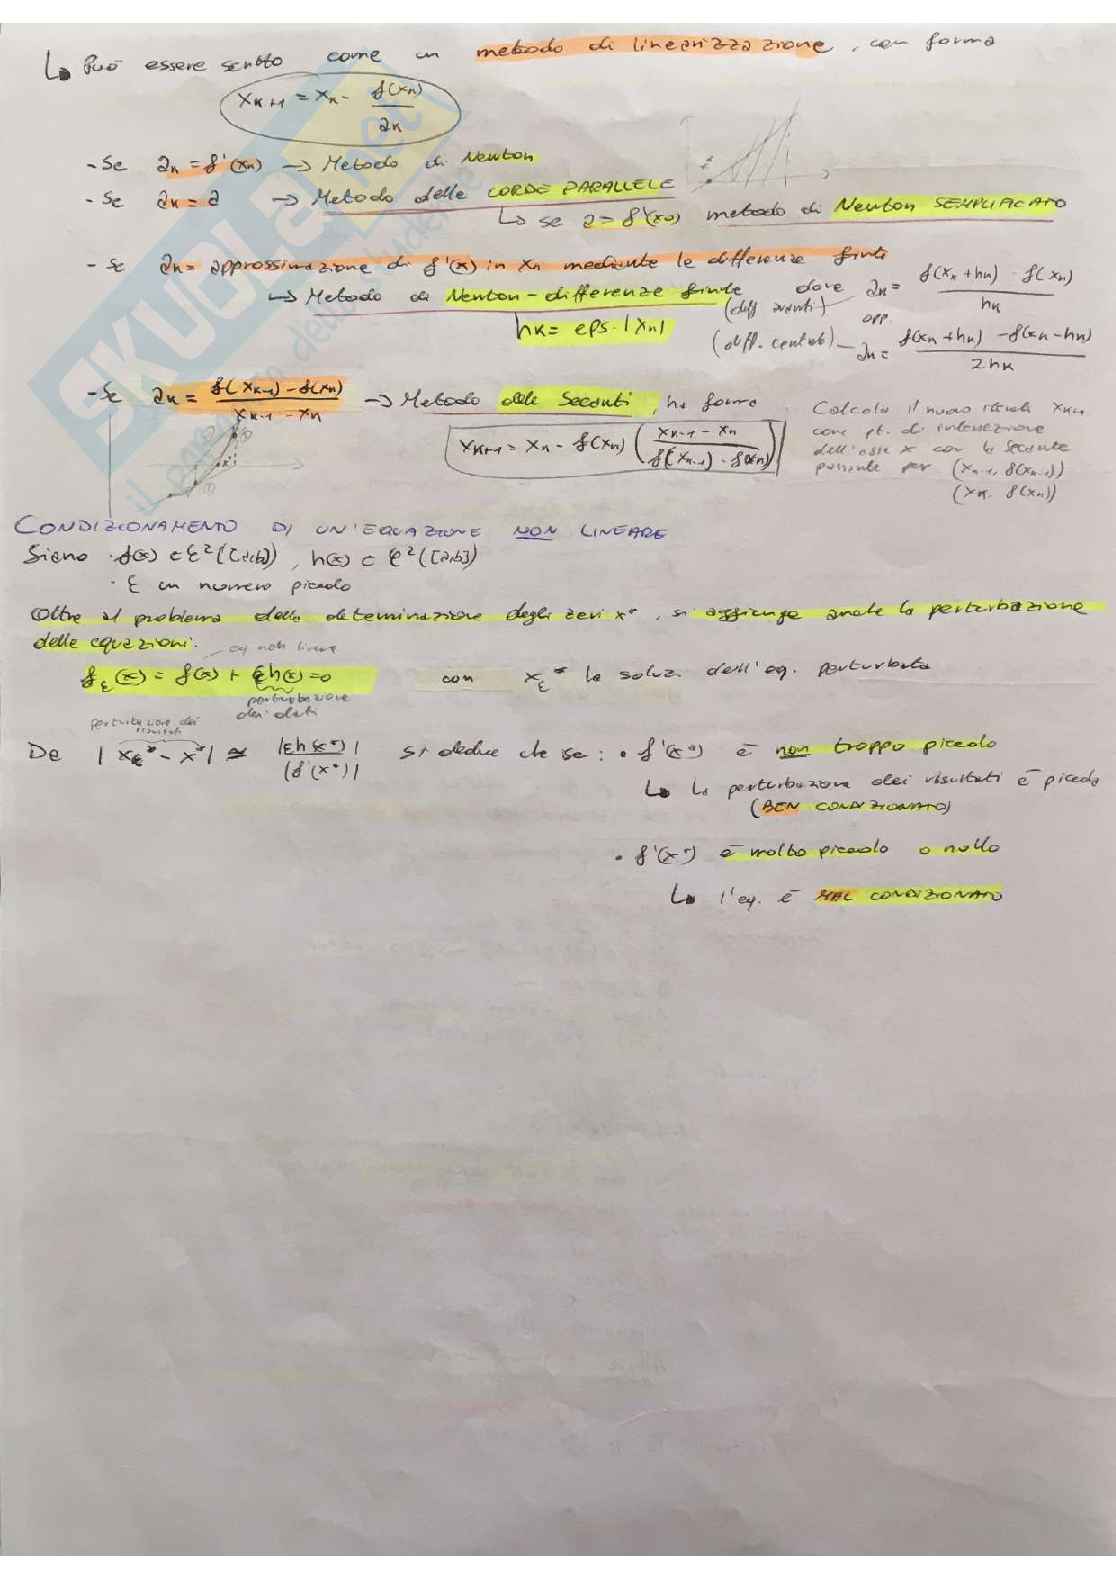 ↳ Può essere scritto come un metodo di linearizzazione, con forma
x_{k+1} = x_k - f(x_k) / a_k
- Se a_k = f'(x_k) → Metodo di Newton
- Se a_k = a → Metodo delle CORDE PARALLELE
↳ se a = f'(x_0) metodo di Newton SEMPLIFICATO
- Se a_k = approssimazione di f'(x) in x_k mediante le differenze finite
→ Metodo di Newton-differenze finite dove a_k = f(x_k + h_k) - f(x_k) / h_k
(diff avanti) opp.
h_k = eps·|x_k| (diff. centrali) — a_k = f(x_k + h_k) - f(x_k - h_k) / 2h_k
- Se a_k = f(x_{k-1}) - f(x_k) / x_{k-1} - x_k → Metodo delle Secanti, ha forma
x_{k+1} = x_k - f(x_k) ( x_{k-1} - x_k / f(x_{k-1}) - f(x_k) )
Calcolo il nuovo x_{k+1}
come pt. di intersezione
dell'asse x con la secante
passante per (x_{k-1}, f(x_{k-1}))
(x_k, f(x_k))
CONDIZIONAMENTO DI UN'EQUAZIONE NON LINEARE
Siano · f(x) ∈ C²([a,b]), h(x) ∈ C²([a,b])
· ε un numero piccolo
Oltre al problema della determinazione degli zeri x*, si aggiunge anche la perturbazione
delle equazioni.
eq non lineare
f_ε(x) = f(x) + εh(x) = 0 con x_ε* la soluz. dell'eq. perturbata
perturbazione
dei dati
perturbazione dei
risultati
Da |x_ε* - x*| ≃ |εh(x*)| / |f'(x*)| si deduce che se: • f'(x*) è non troppo piccolo
↳ la perturbazione dei risultati è piccola
(BEN CONDIZIONATO)
• f'(x*) è molto piccolo o nullo
↳ l'eq. è MAL CONDIZIONATO
SKUOLA.net